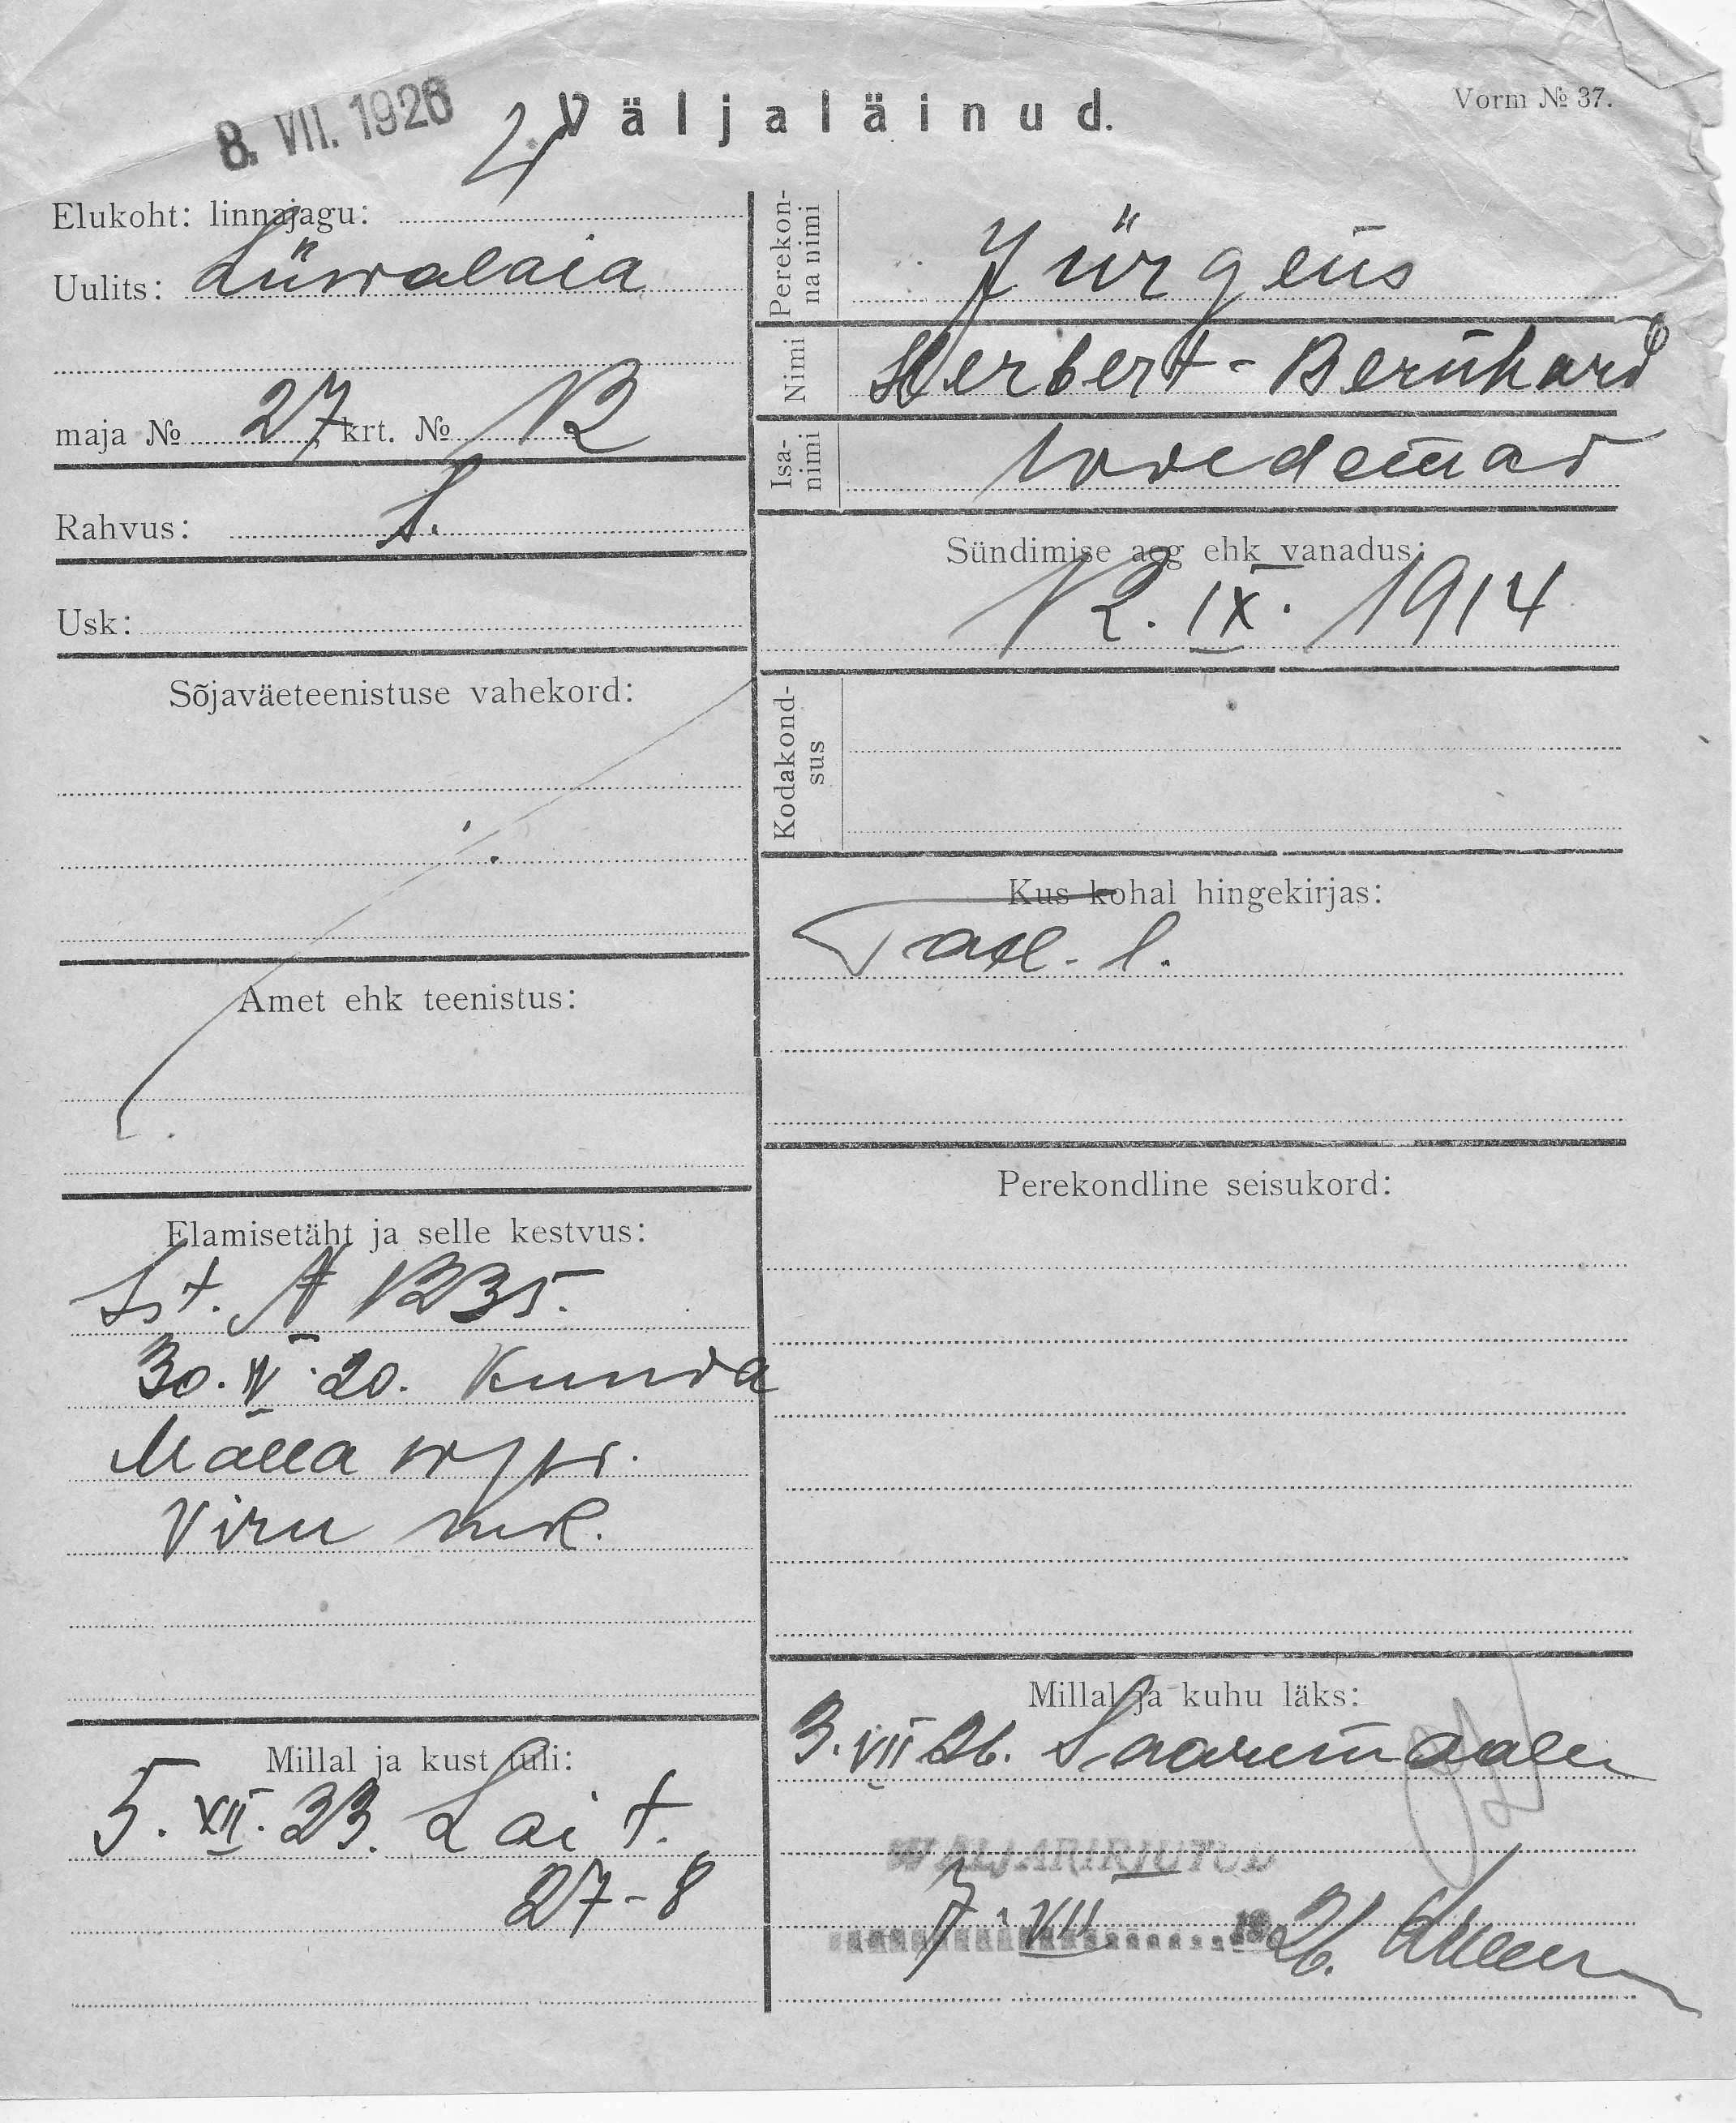 8. VII. 1926
Väljaläinud.
Vorm № 37.
Elukoht: linnajagu:
Uulits: Liiwalaia
maja № 27 krt. № 12
Rahvus:
Usk:
Sõjaväeteenistuse vahekord:
Amet ehk teenistus:
Elamisetäht ja selle kestvus:
Ist. A 1235.
30. IV. 20. Kunda
Malla
Viru mk.
Millal ja kust tuli:
5. XII. 23. Lai t.
27-8
Perekon-
na nimi
Jürgens
Nimi
Herbert-Bernhard
Isa-
nimi
Woldemar
Sündimise aeg ehk vanadus:
12. IX. 1914
Kodakond-
sus
Kus kohal hingekirjas:
Tall. l.
Perekondline seisukord:
Millal ja kuhu läks:
3. VII 26. Saaremaale
WÄLJAKIRJUTUD
7. VII 1926.